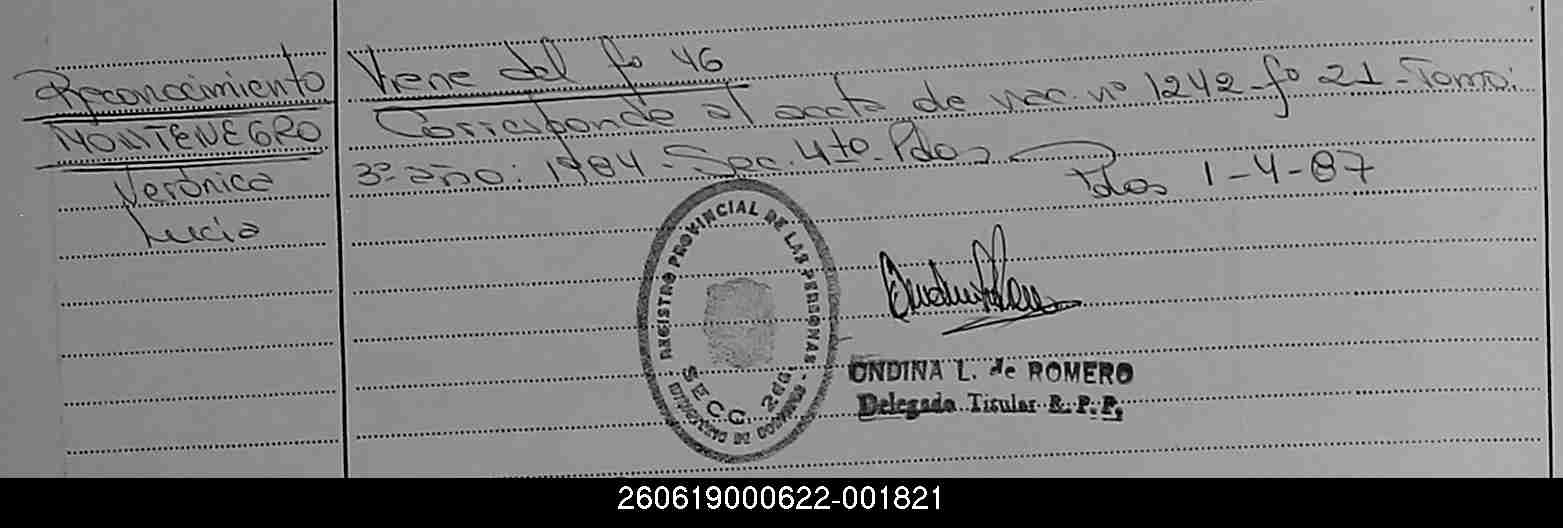 Reconocimiento
MONTENEGRO
Verónica
Lucia
Viene del fo 46
Corresponde al acta de nac. nº 1242 - fº 21 - Tomo:
3º año: 1984 - Sec. 4to. Pdas
Pdas 1-4-87
REGISTRO PROVINCIAL DE LAS PERSONAS
SECC. 2da.
ONDINA L. de ROMERO
Delegada Titular R. P. P.
260619000622-001821